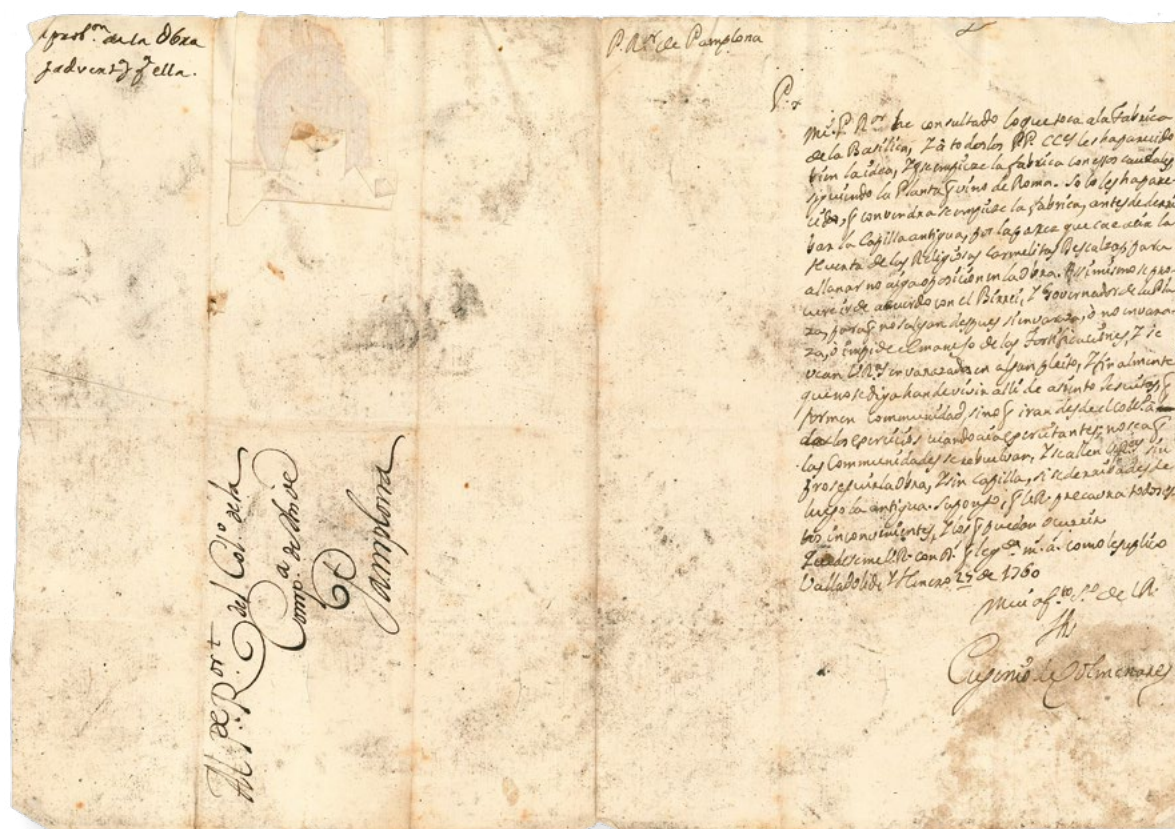 Aprob.on de la Obra
y advert.s p.a ella.
P. R.or de Pamplona
P. X
Mi P. R.or he consultado lo que toca a la Fabrica
de la Basilica, Y à todos los PP. CC.es les ha parecido
bien la idea, Y q̃ se empieze la fabrica con essos caudales
siguiendo la Planta q̃ vino de Roma. Solo les ha pare-
cido, q̃ convendra se empieze la fabrica, antes de derri-
var la Capilla antigua, por la parte que cae acia la
Huerta de los Religiosos Carmelitas Descalzos, para
allanar no aiga oposicion en la Obra. Assimismo se pro-
cure ir de acuerdo con el Birrei, Y Governador de la Pla-
za, para q̃ no salgan despues si invaraza, ò no invara-
za, ò impide el manejo de las Fortificaciones, Y se
vean V.Rs invarazados en algun pleito, Y finalmente
que no se diga han de vivir alli de asiento Jesuitas, q̃
formen Communidad, sino q̃ iran desde el Col.o à
dar los exercicios quando aia exercitantes; no sea q̃
las Communidades se rebuelvan, Y se allen V.Rs sin
proseguir la Obra, Y sin capilla, si se derriba desde
luego la antigua. Supongo, q̃ V.R. precavra todos es-
tos inconvenientes, Y los q̃ puedan ocurrir.
Quedeseme V.R. con D.s q̃ le g.de m. a. como le suplico
Valladolid, Y Henero 25 de 1760
Mui af.to S.o de V.R.
Jhs
Eugenio de Colmenares
Al P. R.or del Col.o de la
Comp.a de Jhs de
Pamplona